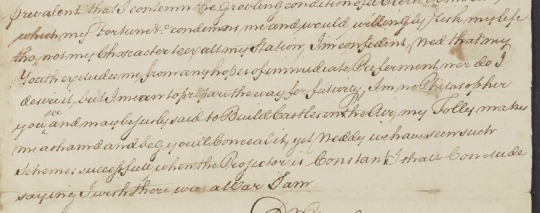 prevalent that I contemn the grov'ling condition of a Clerk or the like
which my Fortune &c. condemns me and would willingly risk my life
tho' not my Character to exalt my Station, Im confident, Ned that my
Youth excludes me from any hopes of immediate Preferment nor do I
desire it, but I mean to prepare the way for futurity, Im no Philosopher
you see and may be justly said to Build Castles in the Air, my Folly makes
me asham'd and beg youll Conceal it, yet Neddy we have seen such
Schemes successfull when the Projector is Constant I shall Conclude
saying I wish there was a War I am